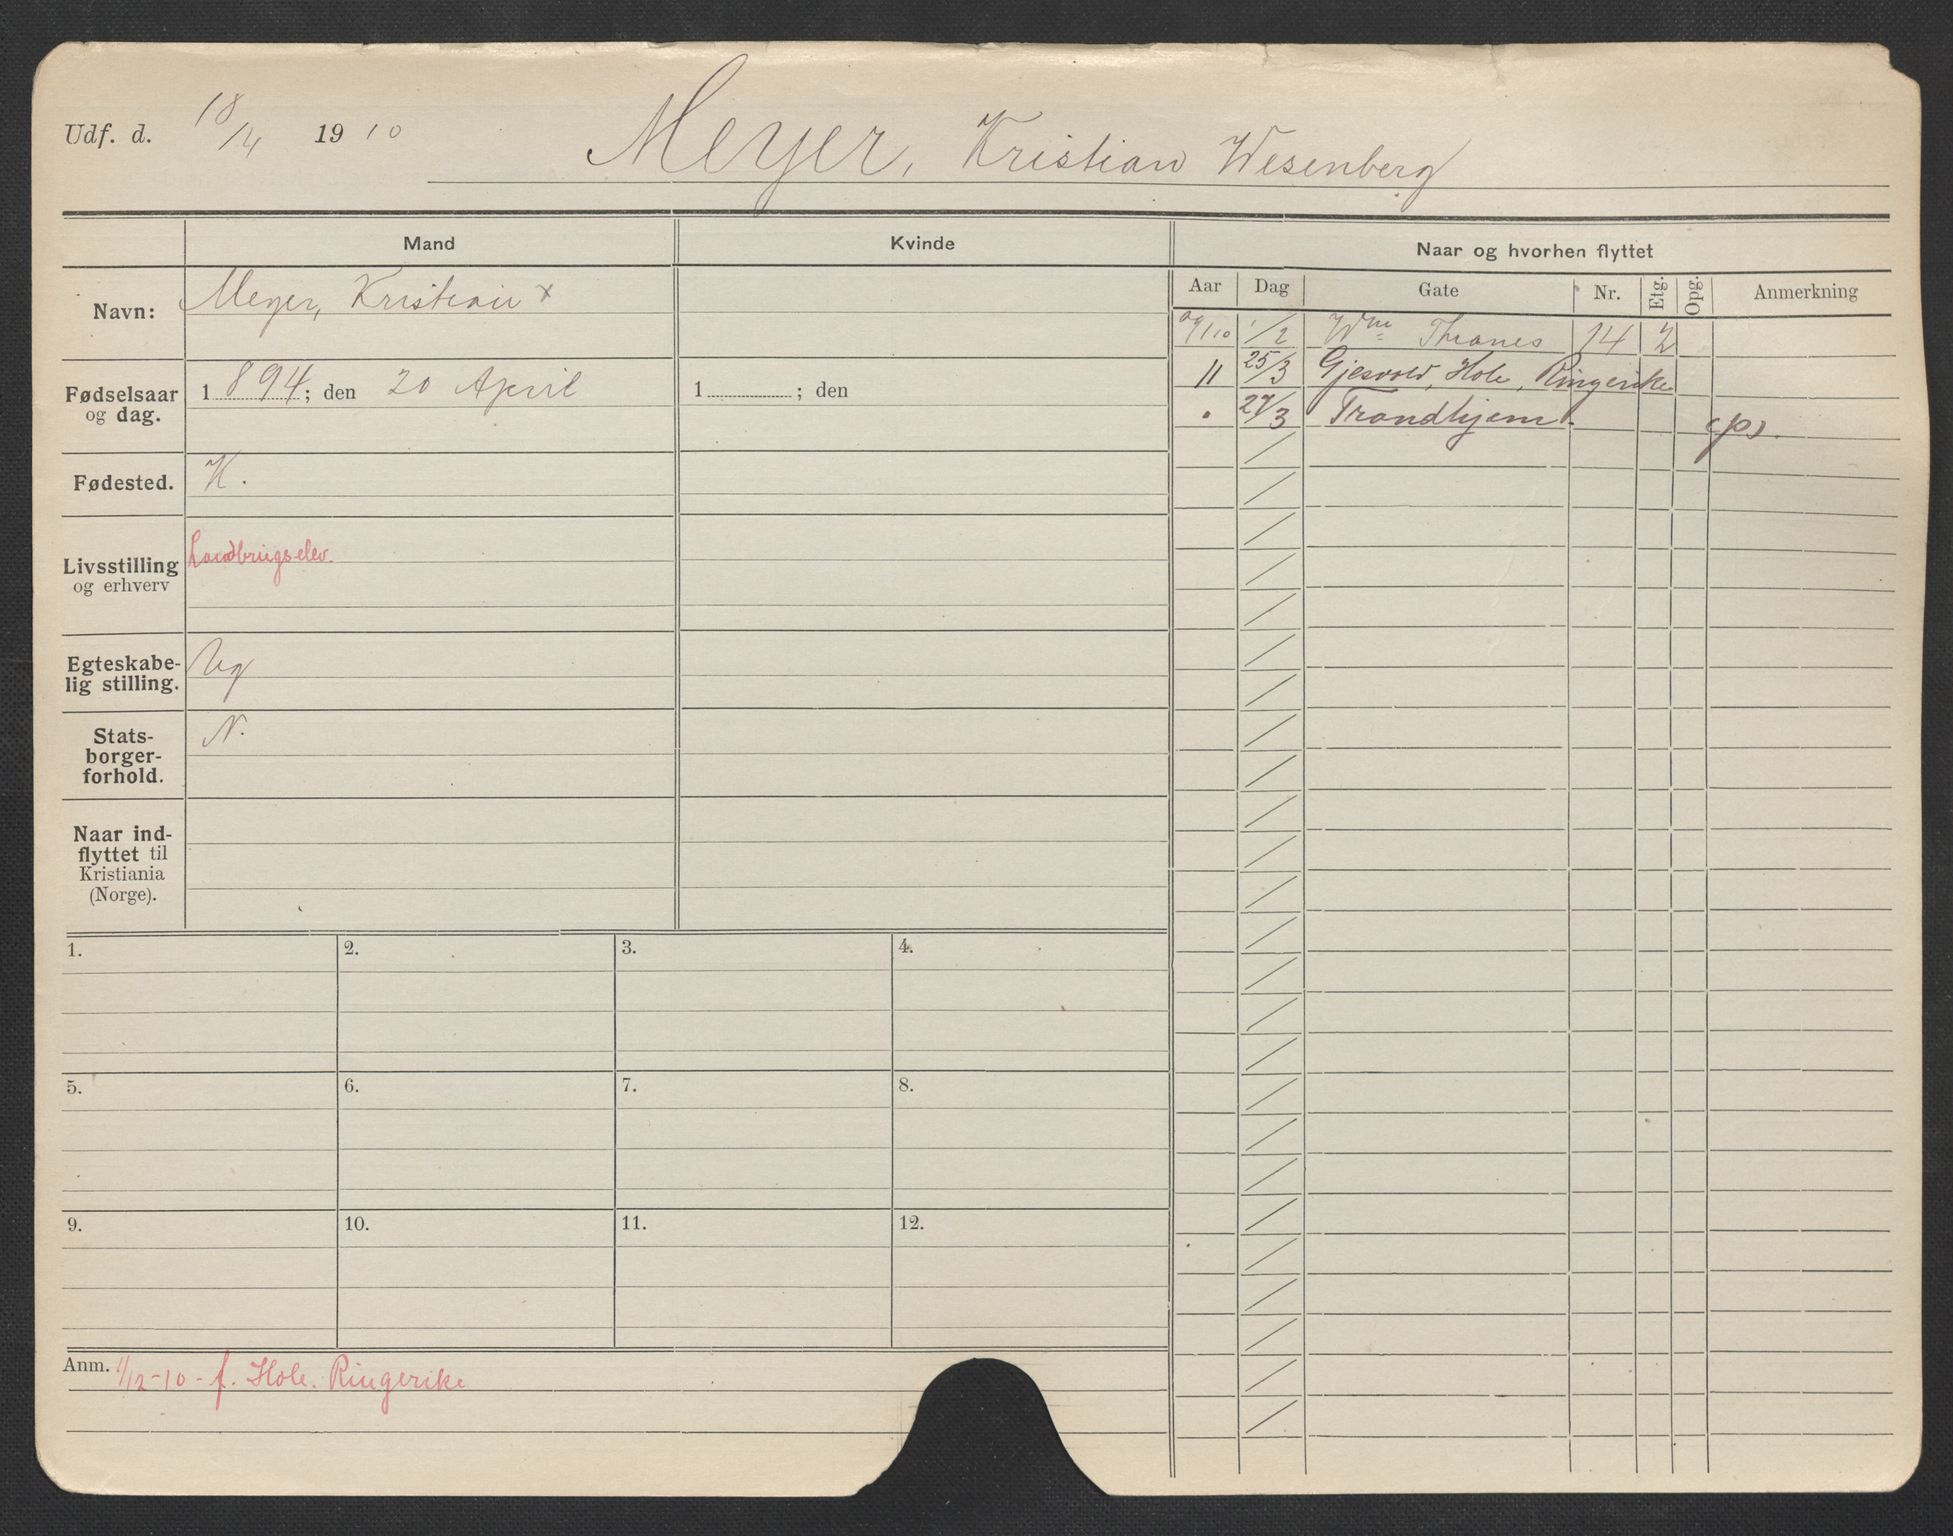 Udf. d. 18/4 1910 Meyer, Kristian Wesenberg
Mand Kvinde Naar og hvorhen flyttet
Aar Dag Gate Nr. Etg. Opg. Anmerkning
Navn: Meyer, Kristian x
Fødselsaar og dag. 1894; den 20 April 1 ; den
Fødested. K.
Livsstilling og erhverv Landbrugs-elev.
Egteskabe-
lig stilling. Ug
Stats-
borger-
forhold. N.
Naar ind-
flyttet til
Kristiania
(Norge).
09/10 1/2 Wm Thranes 14 2
11 25/3 Gjesvold, Hole, Ringerike
" 27/3 Trondhjem. (ps).
1. 2. 3. 4.
5. 6. 7. 8.
9. 10. 11. 12.
Anm. 1/12-10 - f. Hole. Ringerike